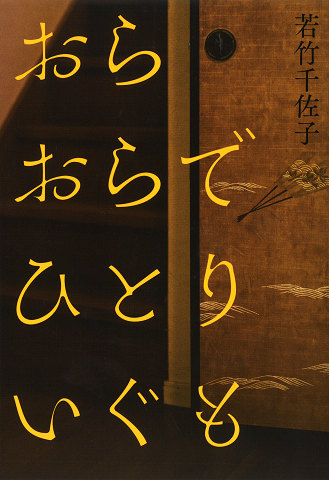 おらおらで
ひとり
いぐも
若竹千佐子